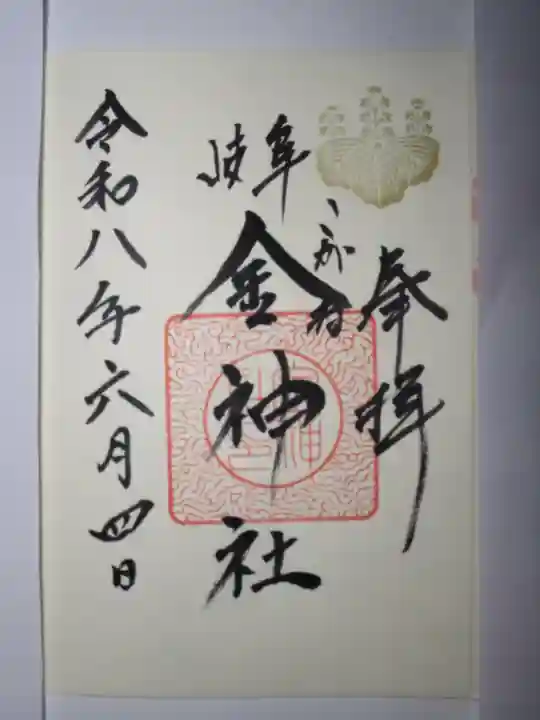 奉拝
岐阜
こがね
金神社
令和八年六月四日